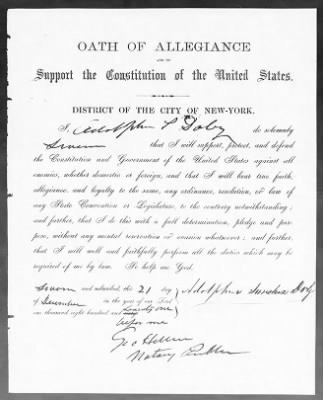 OATH OF ALLEGIANCE
AND TO
Support the Constitution of the United States.
DISTRICT OF THE CITY OF NEW-YORK.
I, Adolphus S Doby do solemnly
Swear that I will support, protect, and defend
the Constitution and Government of the United States against all
enemies, whether domestic or foreign, and that I will bear true faith,
allegiance, and loyalty to the same, any ordinance, resolution, or law of
any State Convention or Legislature, to the contrary notwithstanding;
and further, that I do this with a full determination, pledge and pur-
pose, without any mental reservation or evasion whatsoever; and further,
that I will well and faithfully perform all the duties which may be
required of me by law. So help me God.
Sworn and subscribed, this 21 day Adolphus
of December in the year of our Lord
one thousand eight hundred and seventy one
before me
Geo
Notary Public